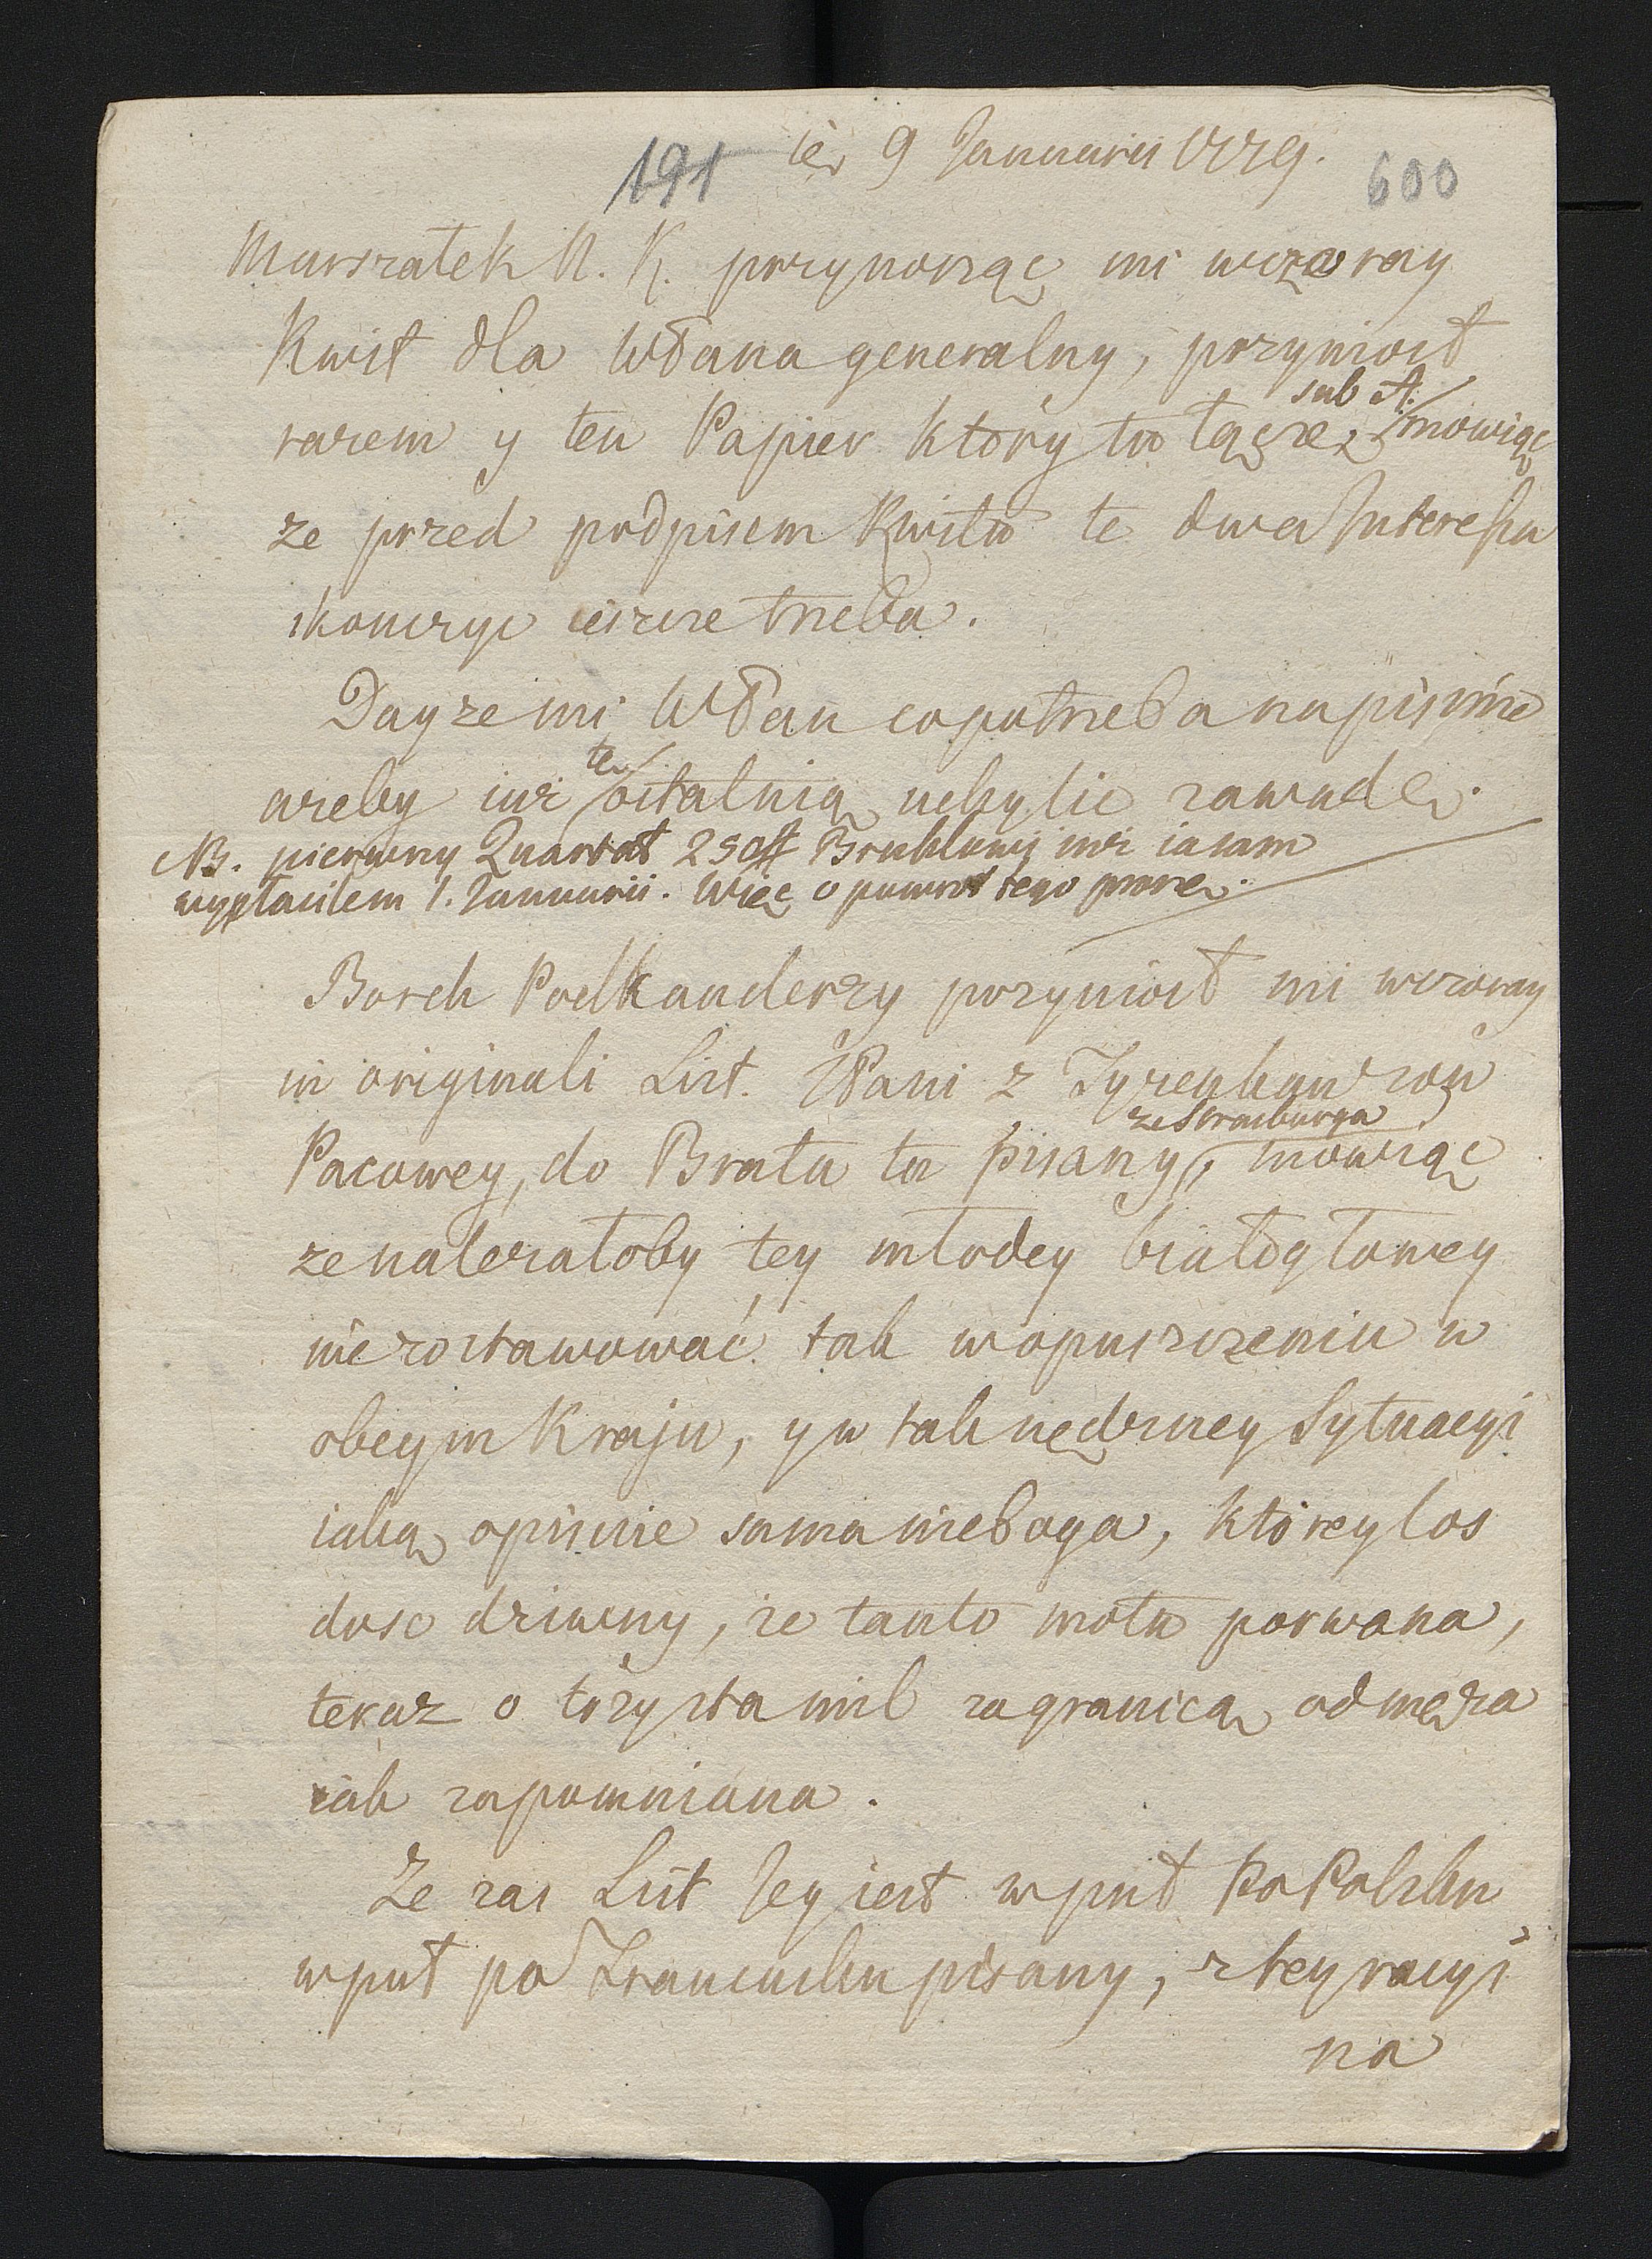 191 ie 9 Januarii 1779. 600
Marszałek N. K. przynosząc mi wczoray
Kwit dla WPana generalny, przyniosł
razem y ten Papier który tu łączę, sub A. mowiąc
ze przed podpisem Kwitu te dwa Interessa
skonczyc ieszcze trzeba.
Dayze mi WPan co potrzeba na pismie
azeby iuz te ostalnią uchylic zawadę.
NB. pierwszy Quartał 250# Bruhlowy iuz ia sam
wypłacilem 1. Januarii. Więc o powrot tego proszę.
Borch Podkanclerzy przyniosł mi wczoray
in originali List. JPani z Tyzenhauzow
Pacowey, do Brata tu pisany, ze Strasburga mowiąc
ze nalezałoby tey młodey białogłowey
nie zostawować tak w opuszczeniu w
obcym Kraju, y w tak nędzney Sytuacyi
iaką opisuie sama nieboga, którey los
dosc dziwny, ze tanto motu porwana,
teraz o trzysta mil za granicą od męza
iak zapomniana.
Ze zas List Jey iest w puł po Polsku
w puł po Francusku pisany, z tey racyi
na